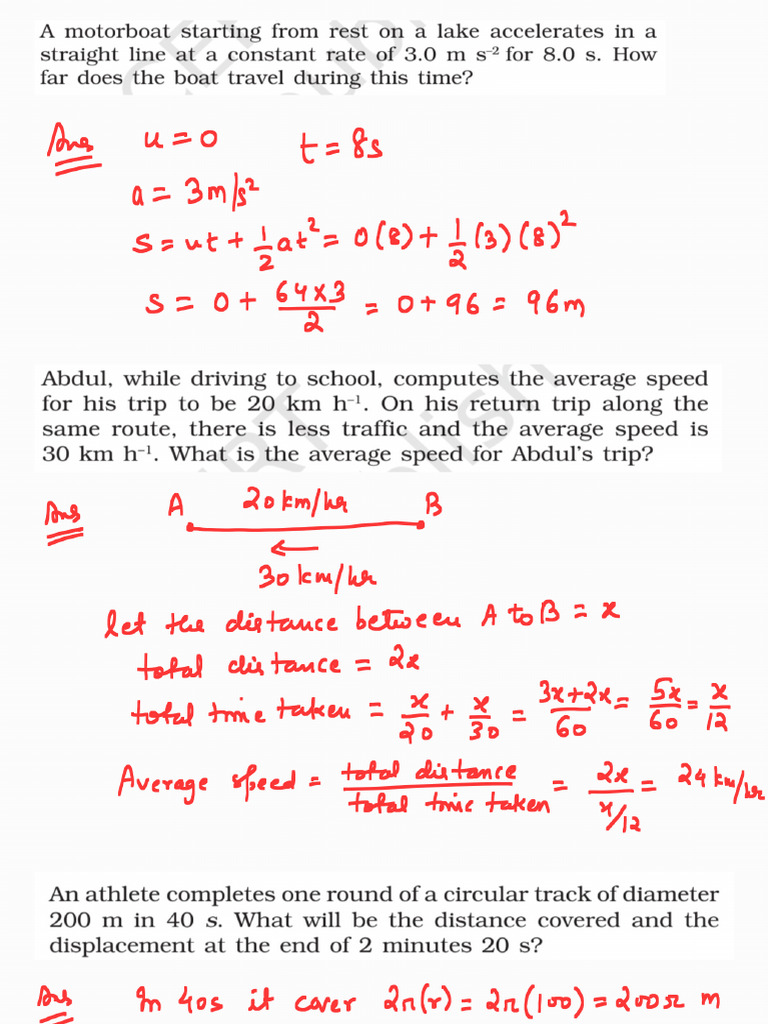 A motorboat starting from rest on a lake accelerates in a
straight line at a constant rate of 3.0 m s⁻² for 8.0 s. How
far does the boat travel during this time?
Ans u = 0 t = 8s
a = 3m/s²
S = ut + 1/2 at² = 0(8) + 1/2 (3)(8)²
S = 0 + 64×3/2 = 0+96 = 96m
Abdul, while driving to school, computes the average speed
for his trip to be 20 km h⁻¹. On his return trip along the
same route, there is less traffic and the average speed is
30 km h⁻¹. What is the average speed for Abdul's trip?
Ans A 20km/hr B
←
30km/hr
let the distance between A to B = x
total distance = 2x
total time taken = x/20 + x/30 = 3x+2x/60 = 5x/60 = x/12
Average speed = total distance/total time taken = 2x/x/12 = 24km/hr
An athlete completes one round of a circular track of diameter
200 m in 40 s. What will be the distance covered and the
displacement at the end of 2 minutes 20 s?
Ans In 40s it cover 2π(r) = 2π(100) = 200π m